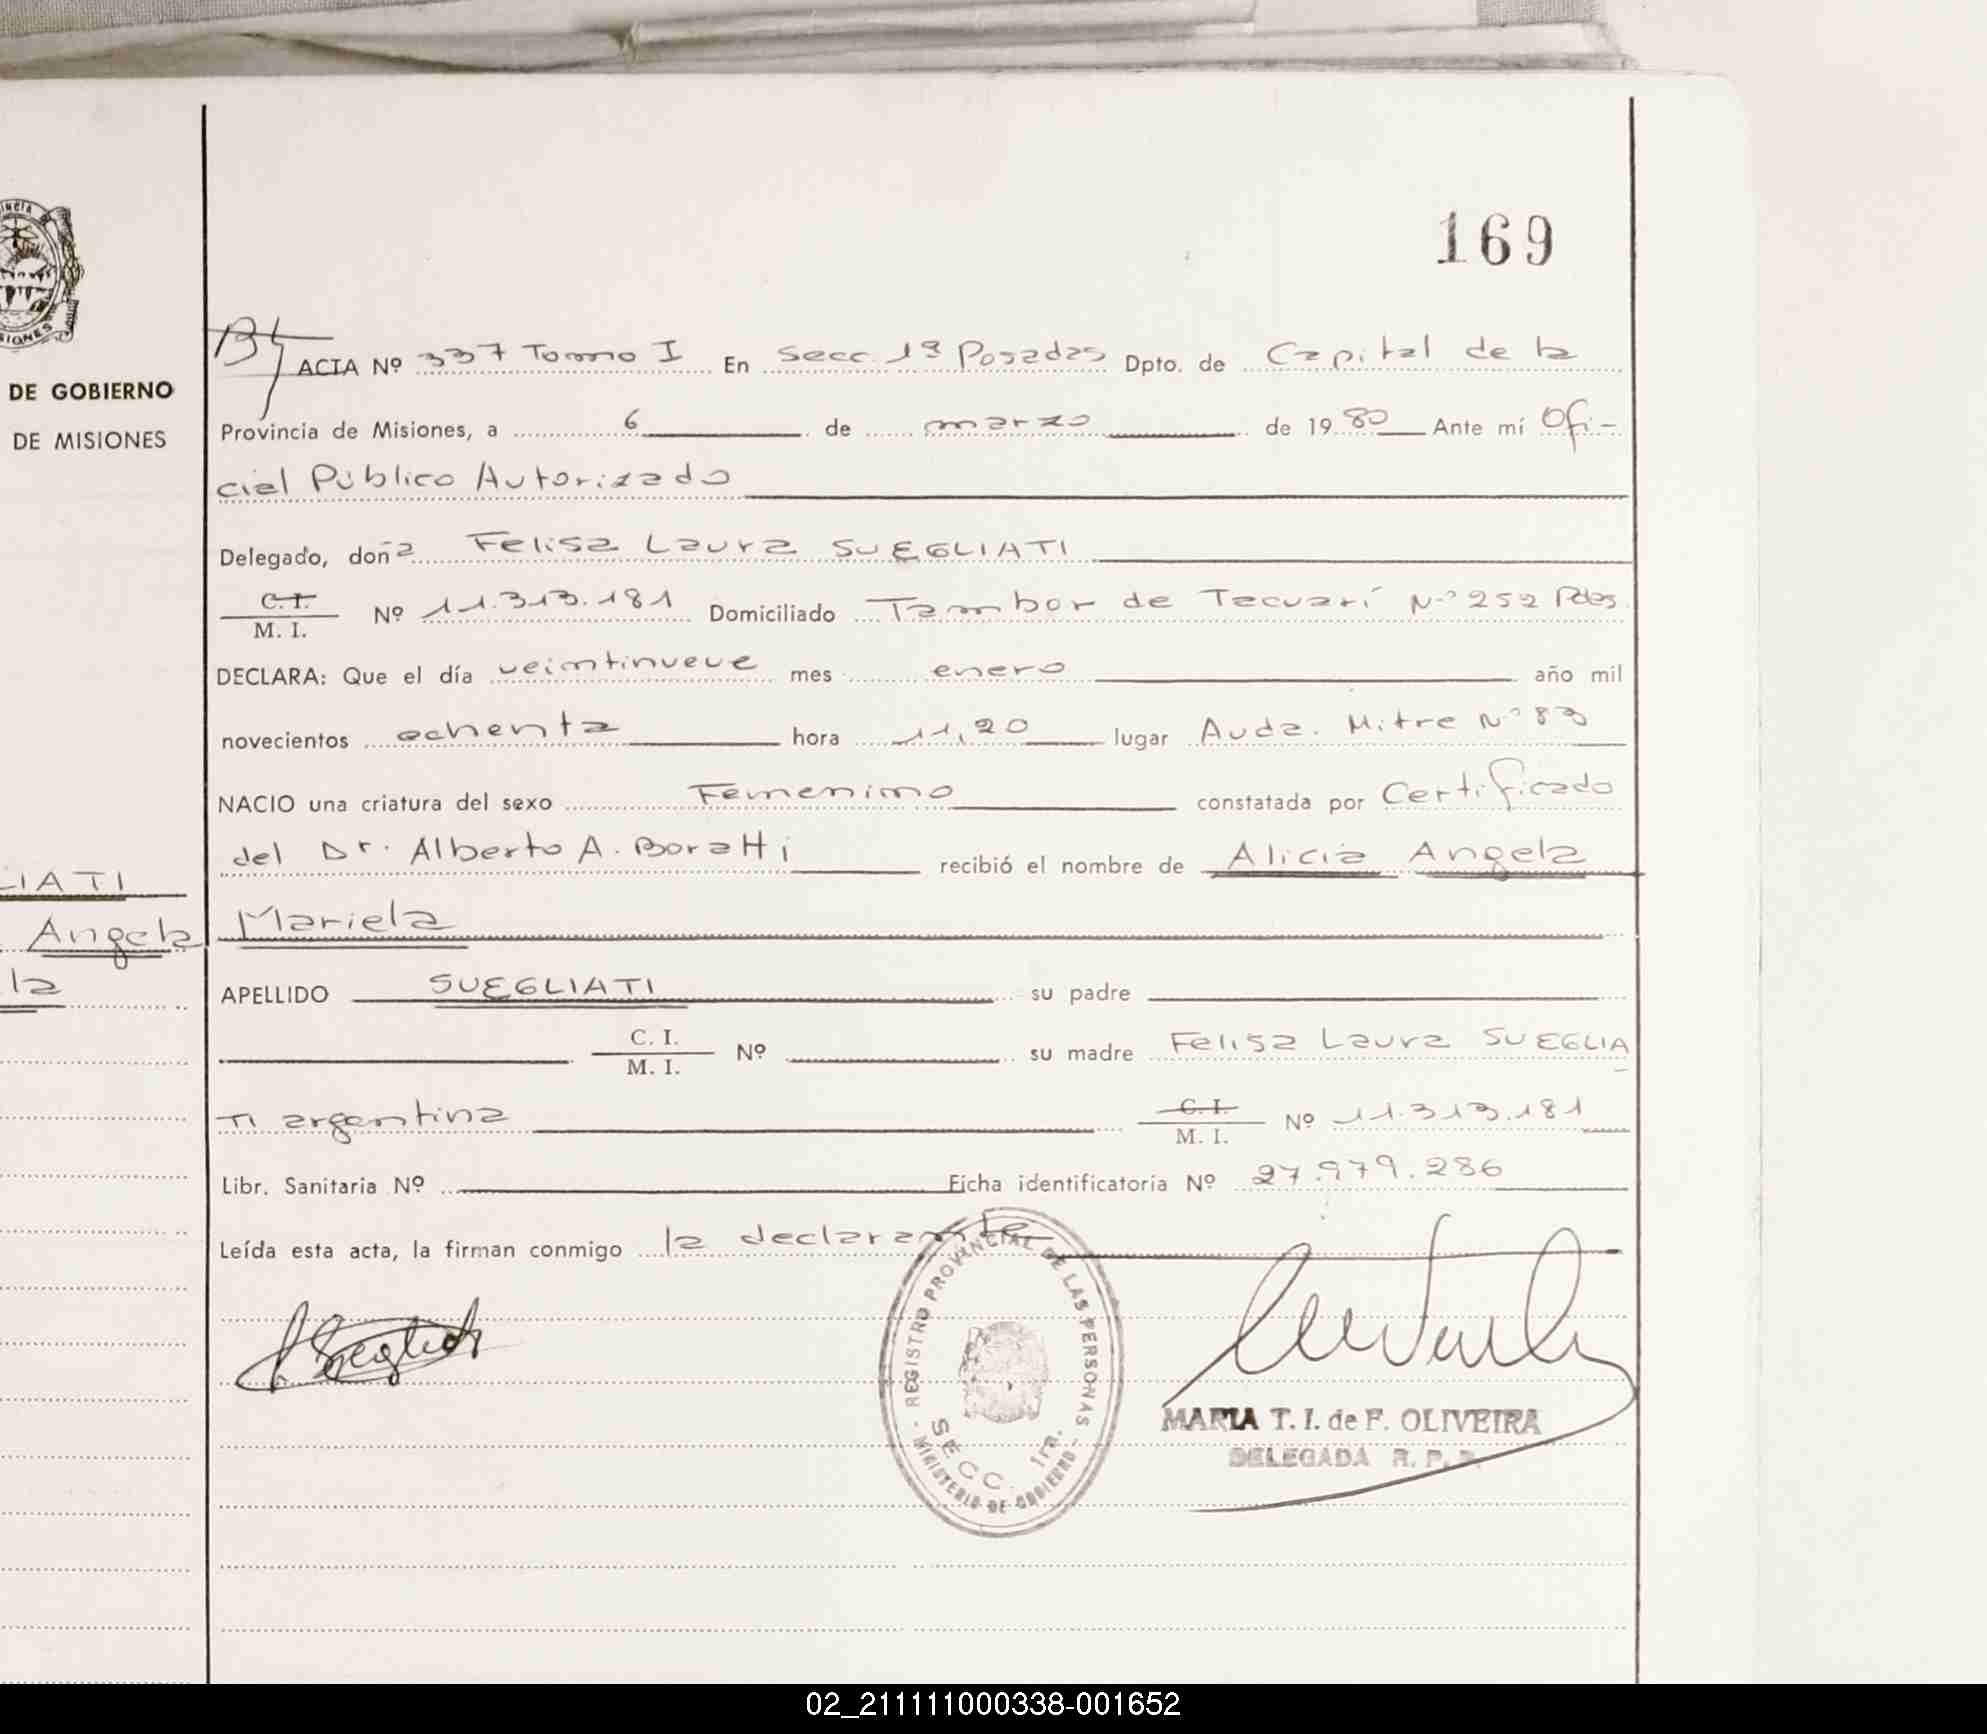 169
ACTA Nº 337 Tomo I En Secc. 1ª Posadas Dpto. de Capital de la
Provincia de Misiones, a 6 de marzo de 1980 Ante mí Ofi-
cial Público Autorizado
Delegado, doña Felisa Laura SVEGLIATI
C. I.
M. I. Nº 11.313.181 Domiciliado Tambor de Tacuarí Nº 252 Pdas.
DECLARA: Que el día veintinueve mes enero año mil
novecientos ochenta hora 11,20 lugar Avda. Mitre Nº 83
NACIO una criatura del sexo Femenino constatada por Certificado
del Dr. Alberto A. Boratti recibió el nombre de Alicia Angela
Mariela
APELLIDO SVEGLIATI su padre
C. I.
M. I. Nº su madre Felisa Laura SVEGLIA
TI argentina C. I.
M. I. Nº 11.313.181
Libr. Sanitaria Nº Ficha identificatoria Nº 27.979.286
Leída esta acta, la firman conmigo la declarante
REGISTRO PROVINCIAL DE LAS PERSONAS
SECC. 1ra.
MINISTERIO DE GOBIERNO
MARIA T. I. de F. OLIVEIRA
DELEGADA R. P. P.
MISIONES
DE GOBIERNO
DE MISIONES
LIATI
Angela
la
02_211111000338-001652